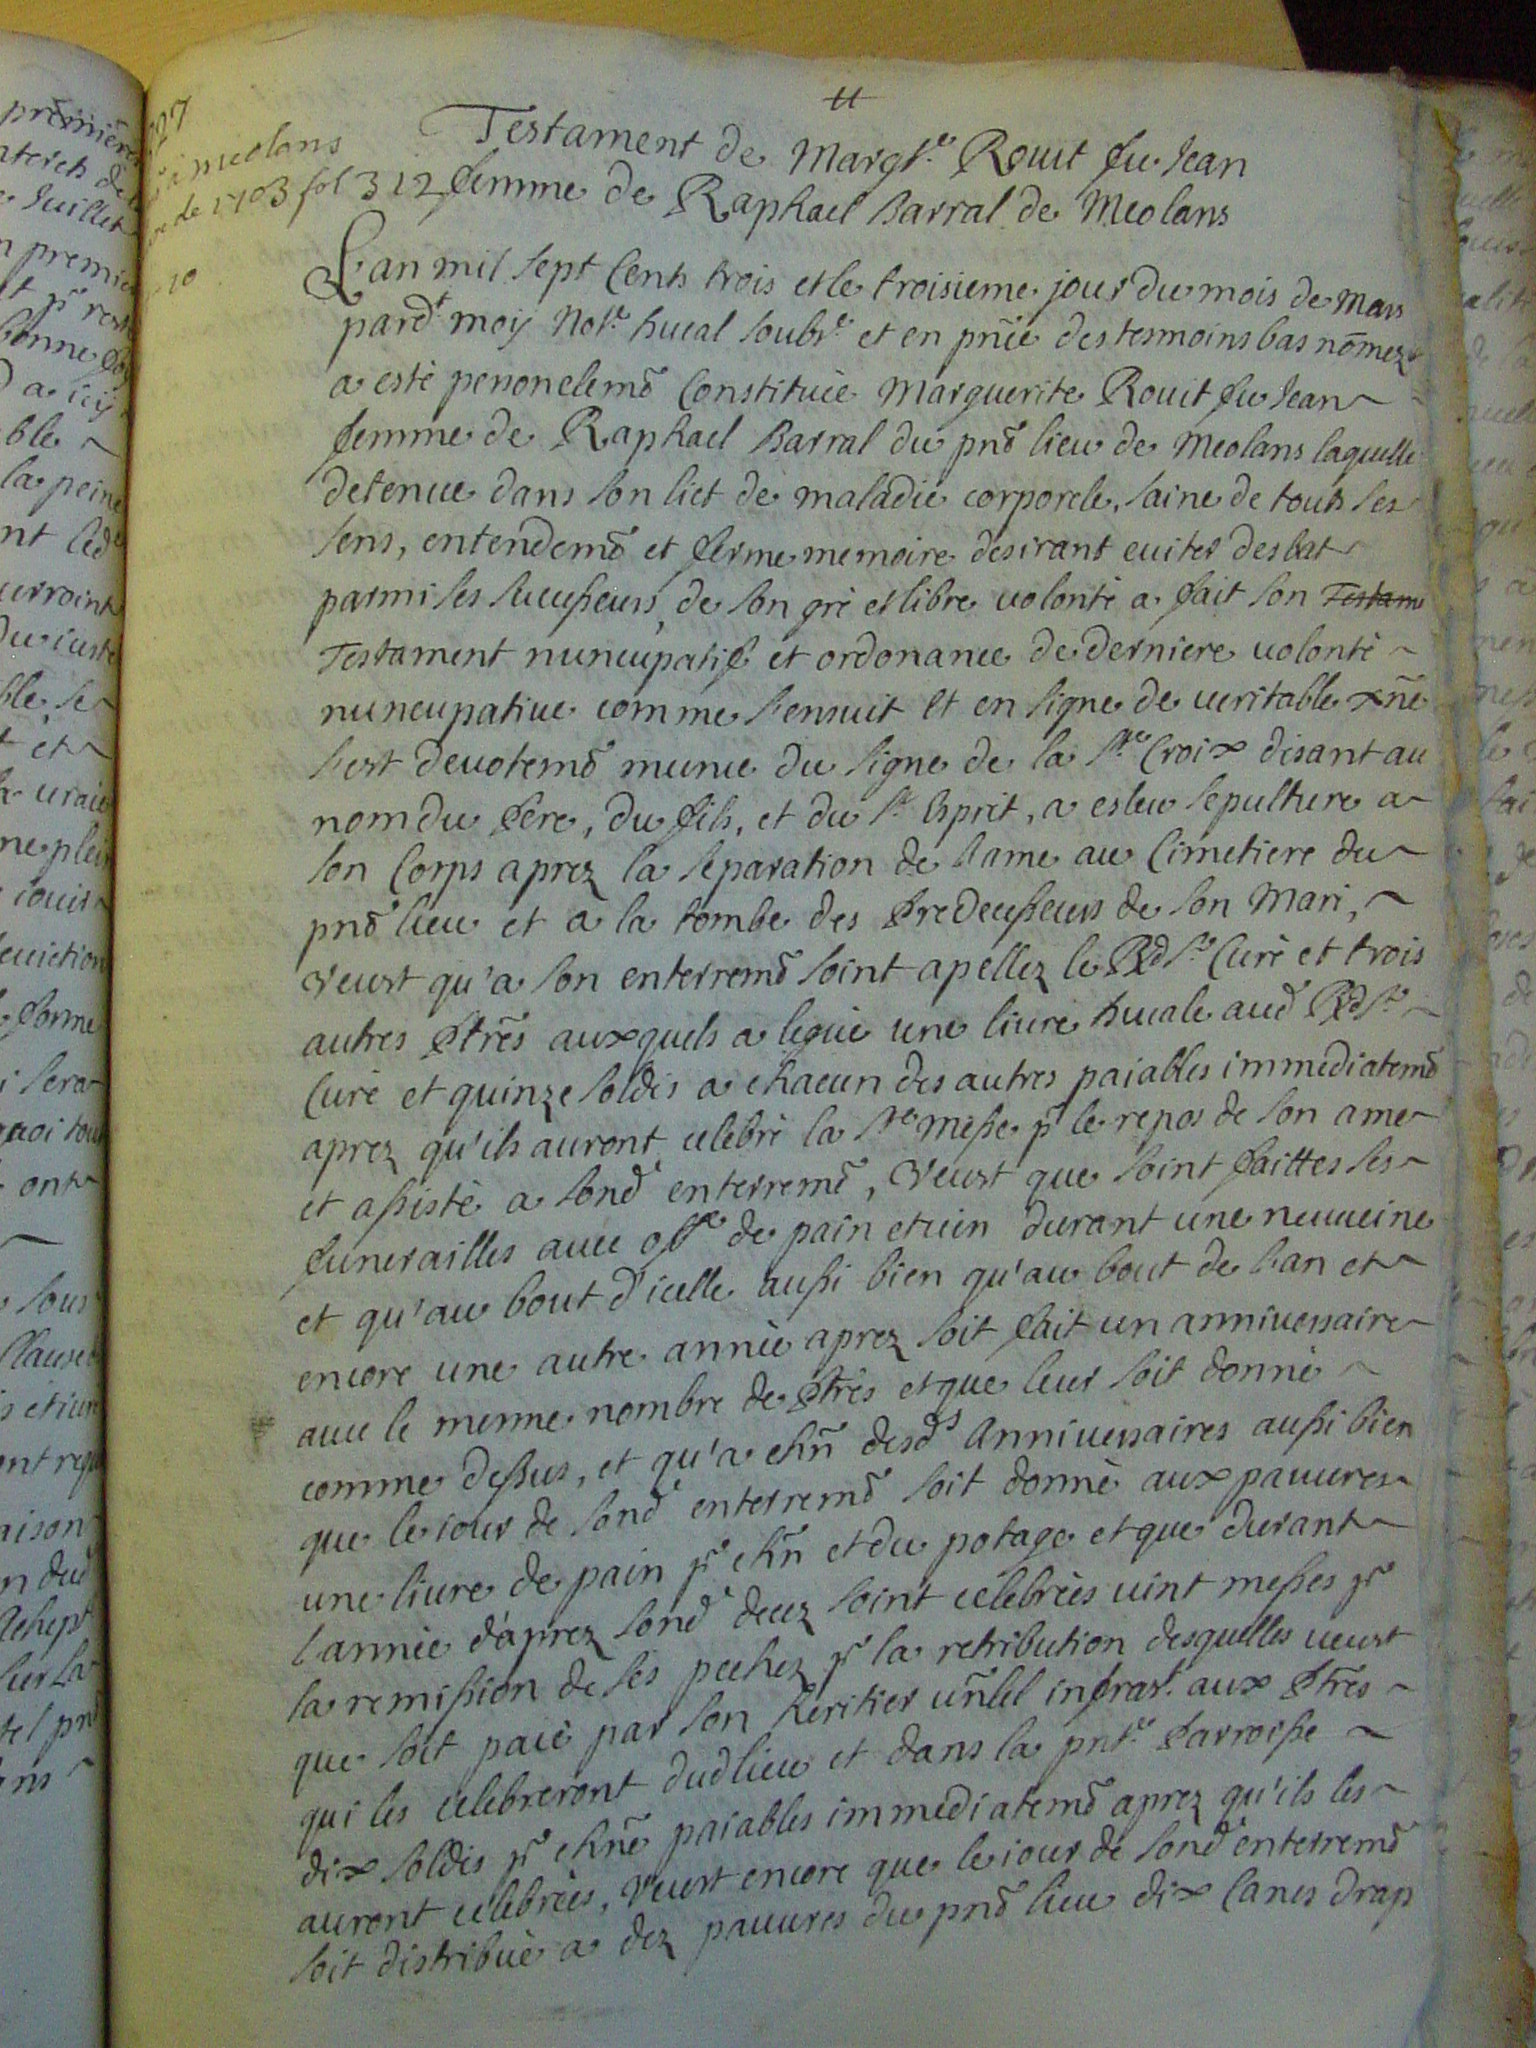 11
Testament de Margte. Rouit fu Jean
femme de Raphael Barral de Meolans
27
a meolans
de 1703 fol 312
10
L'an mil sept Cents trois et le troisieme jour du mois de Mars
pard.t moy Not.re ducal soubs.é et en pñce des tesmoins bas nõmez
a esté personelemẽ Constituée Marguerite Rouit fu Jean
femme de Raphael Barral du pnt lieu de Meolans laquelle
detenue dans son lict de maladie corporele, saine de touts ses
sens, entendemẽ et ferme memoire desirant euiter desbat
parmi ses successeurs, de son gré et libre uolonté a fait son Testam
Testament nuncupatif et ordonance de derniere uolonté
nuncupatiue comme s'ensuit Et en signe de ueritable xñe
s'est deuotemẽ munie du signe de la ste Croix disant au
nom du Pere, du fils, et du st Esprit, a esleu sepulture a
son Corps aprez la separation de l'ame au Cimetiere du
pnt lieu et a la tombe des Predecesseurs de son Mari,
Veust qu'a son enterremẽ soint apellez le Rd sr Curé et trois
autres Ptrēs auxquels a legué une liure ducale aud Rd sr
Curé et quinze soldis a chacun des autres paiables immediatemẽ
aprez qu'ils auront celebré la ste Messe pr le repos de son ame
et assisté a sond enterremẽ, Veust que soint faittes ses
funerailles auec offe de pain et uin durant une neuueine
et qu'au bout d'icelle aussi bien qu'au bout de l'an et
encore une autre année aprez soit fait un anniuersaire
auec le mesme nombre de Ptrēs et que leur soit donné
comme dessus, et qu'a chñ desds Anniuersaires aussi bien
que le iour de sond enterremẽ soit donné aux pauures
une liure de pain pr chñ et du potage et que durant
l'année d'aprez sond decez soint celebrées uint messes pr
la remission de ses pechez pr la retribution desquelles ueust
que soit paié par son heritier uñlel infrat. aux Ptrēs
qui les celebreront dud lieu et dans la pnte. Parroisse
dix soldis pr chñe paiables immediatemẽ aprez qu'ils les
auront celebrées, Veust encore que le iour de sond enterremẽ
soit distribué a dez pauures du pnt lieu dix Canes drap